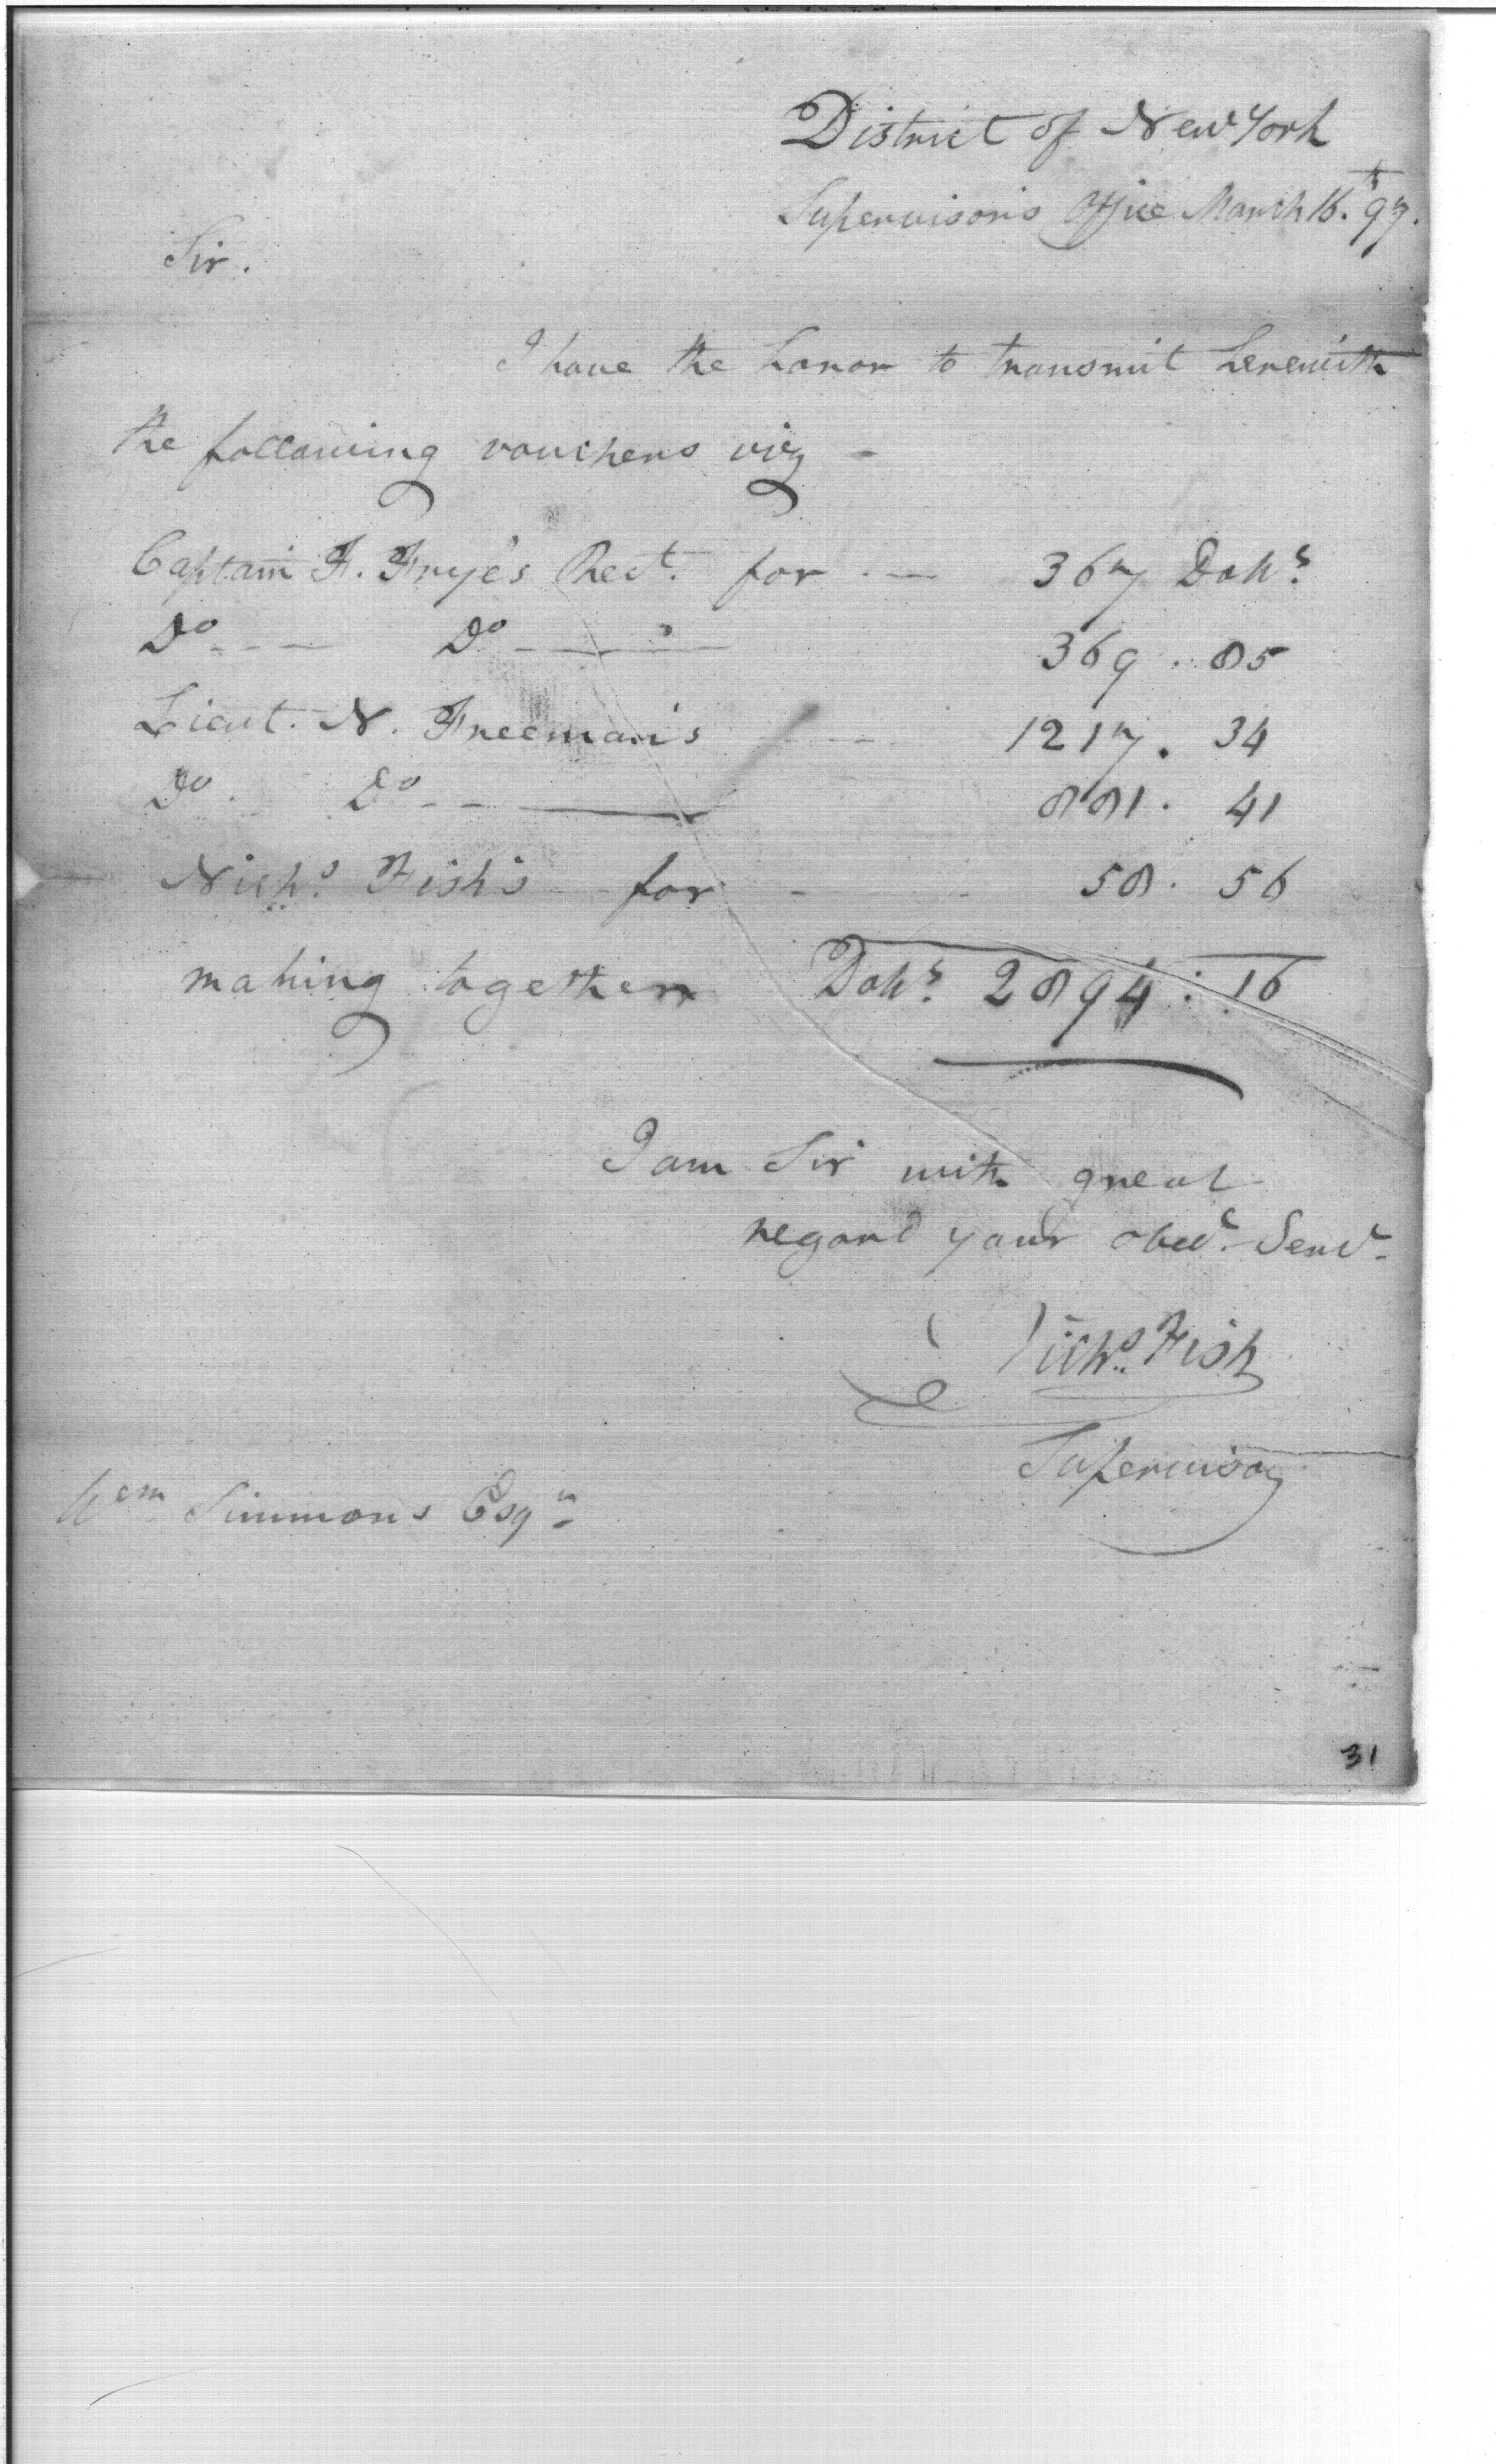 District of New York
Supervisor's Office March 16.th 97.
Sir.
I have the honor to transmit herewith
the following vouchers viz -
Captain F. Frye's Rect. for - 367 Dolls.
Do - Do - 369 . 85
Lieut. N. Freeman's 1217 . 34
Do. Do - 881 . 41
Nichs. Fish's for - 58 . 56
making together Dolls. 2894 . 16
I am Sir with great
regard your obedt. Servt.
Nichs. Fish
Supervisor
Wm Simmons Esqr.
31